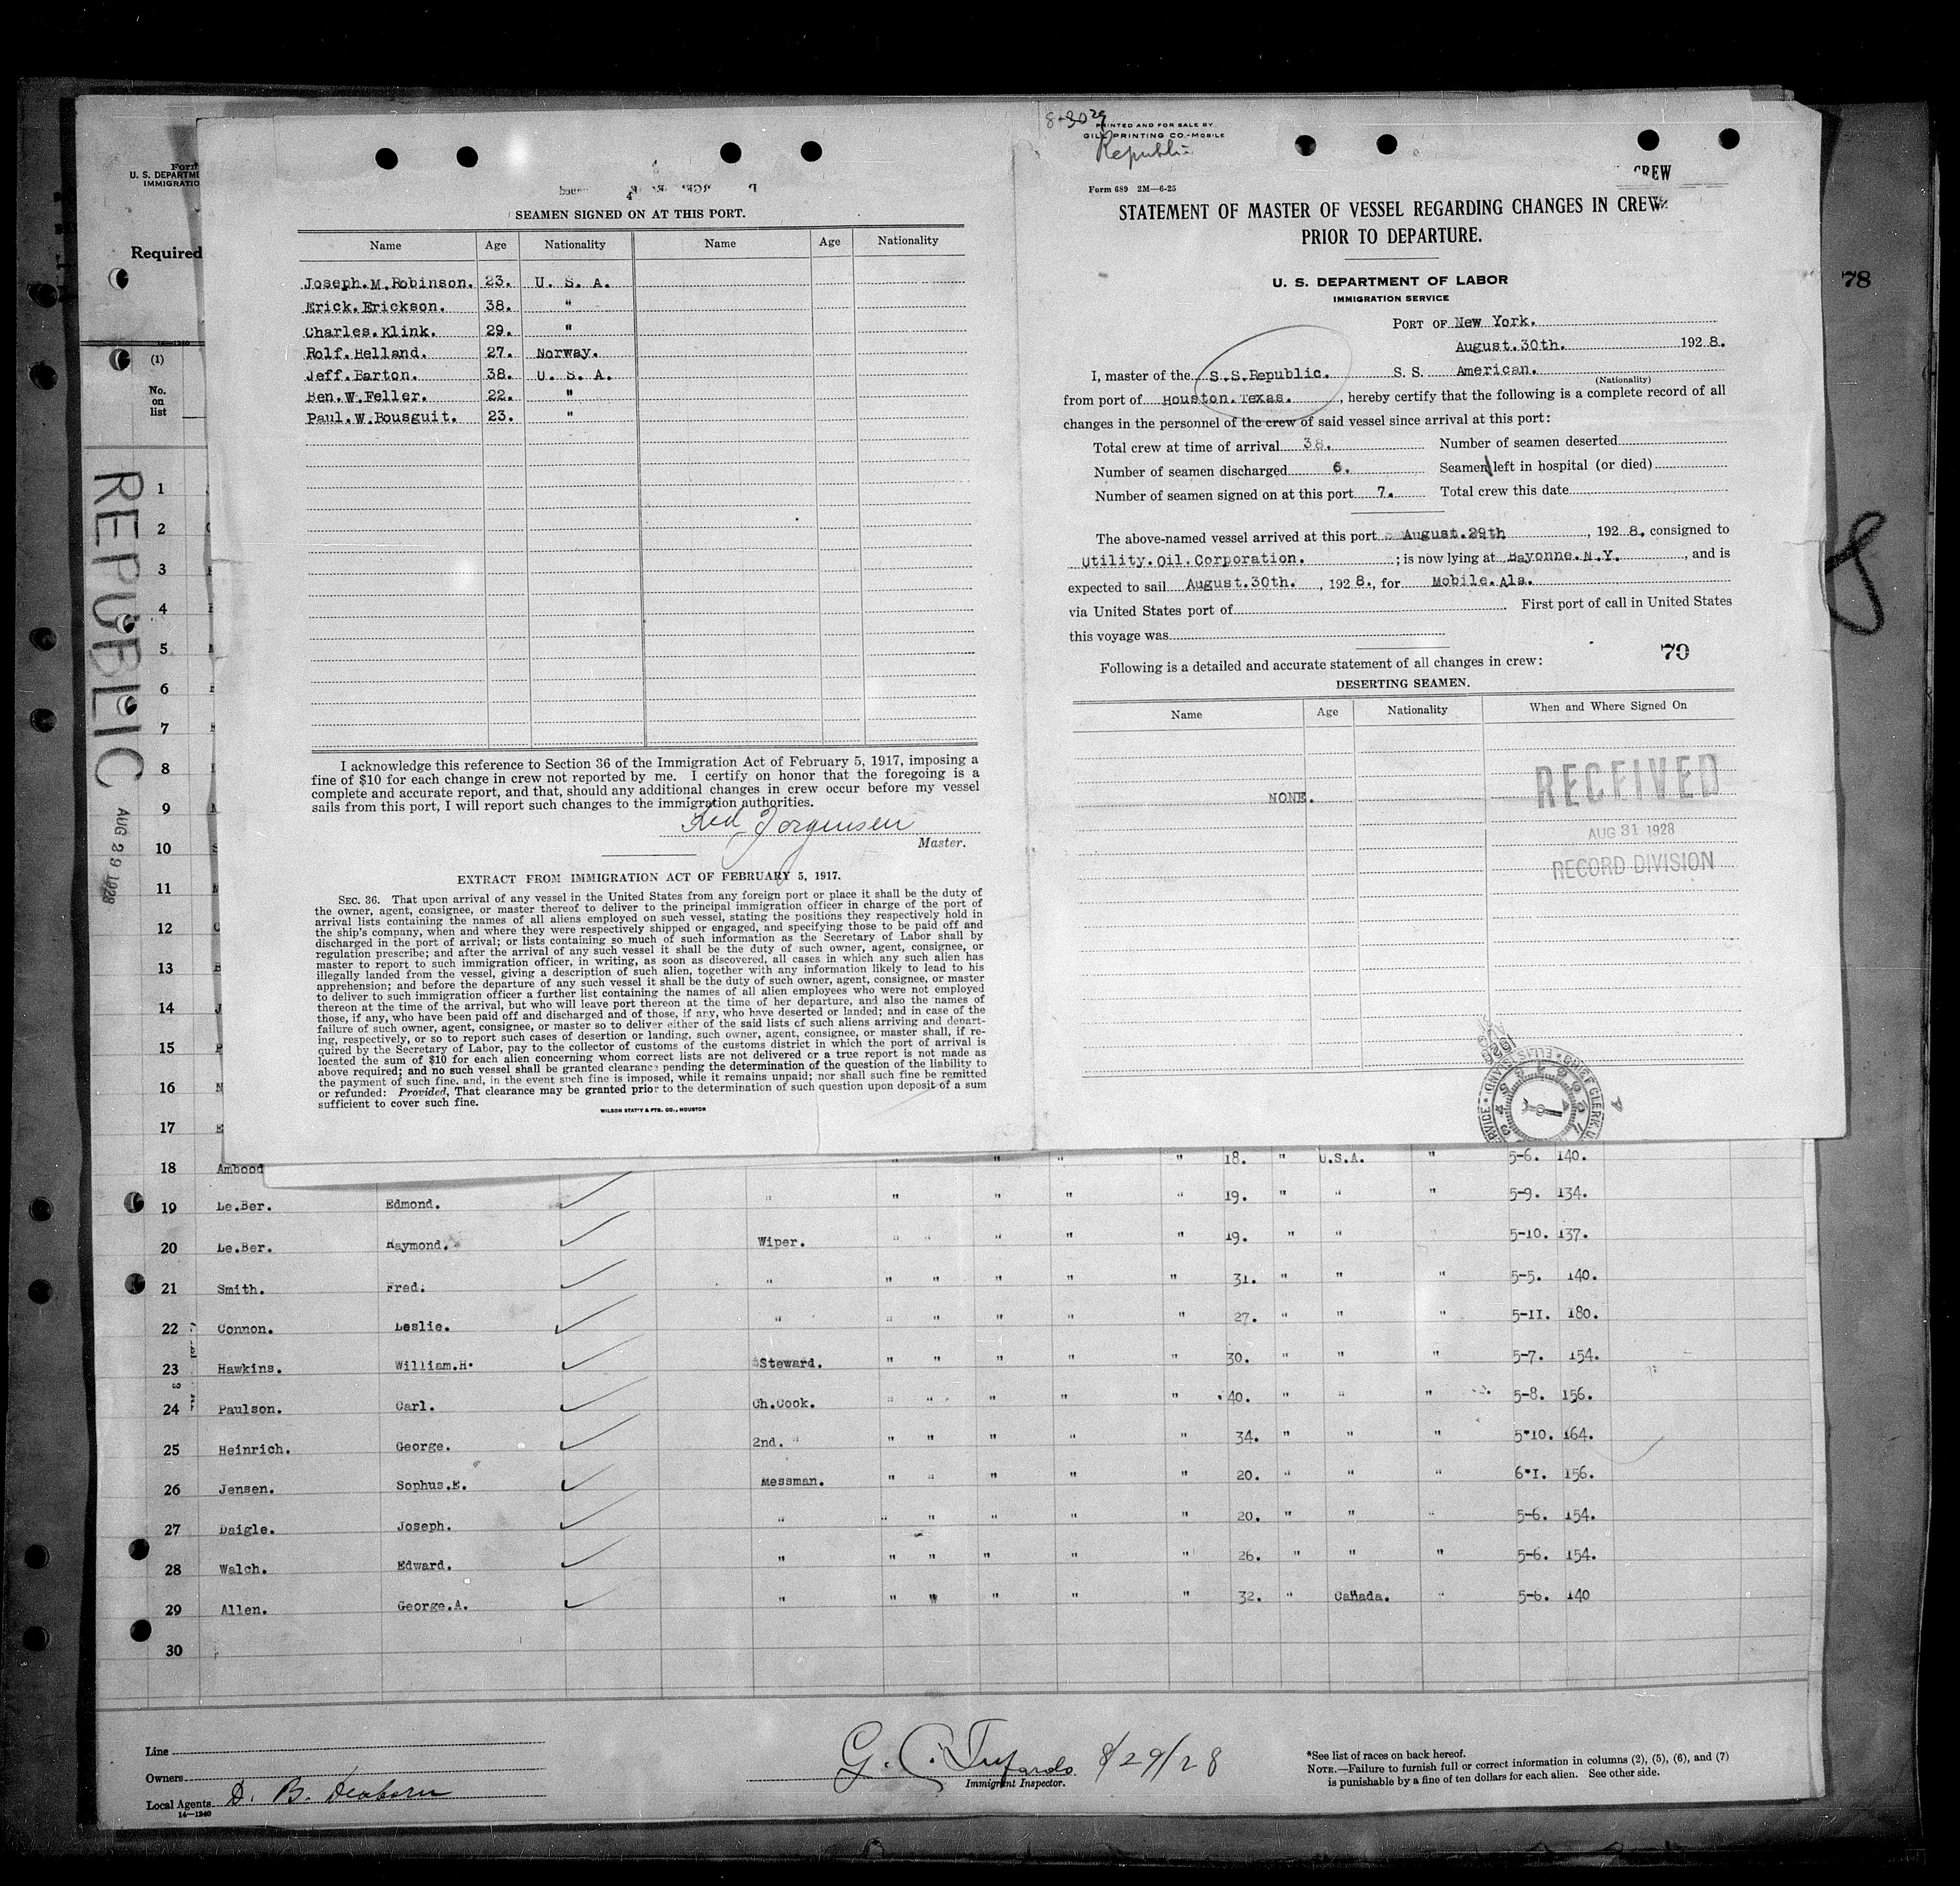 8-30 29
PRINTED AND FOR SALE BY
GILL PRINTING CO.-MOBILE
Republic
CREW
Form 689 2M—6-25
STATEMENT OF MASTER OF VESSEL REGARDING CHANGES IN CREW
PRIOR TO DEPARTURE.
U. S. DEPARTMENT OF LABOR
IMMIGRATION SERVICE
PORT OF New York.
August.30th. 192 8.
I, master of the S.S.Republic. S. S. American.
(Nationality)
from port of Houston.Texas. , hereby certify that the following is a complete record of all
changes in the personnel of the crew of said vessel since arrival at this port:
Total crew at time of arrival 38. Number of seamen deserted
Number of seamen discharged 6. Seamen left in hospital (or died)
Number of seamen signed on at this port 7. Total crew this date
The above-named vessel arrived at this port August.29th , 192 8. consigned to
Utility.Oil.Corporation. ; is now lying at Bayonne.N.Y. , and is
expected to sail August.30th. , 192 8., for Mobile.Ala.
via United States port of First port of call in United States
this voyage was
70
Following is a detailed and accurate statement of all changes in crew:
DESERTING SEAMEN.
Name Age Nationality When and Where Signed On
NONE.
RECEIVED
AUG 31 1928
RECORD DIVISION
SEAMEN SIGNED ON AT THIS PORT.
Name Age Nationality Name Age Nationality
Joseph.M.Robinson. 23. U. S. A.
Erick.Erickson. 38. "
Charles.Klink. 29. "
Rolf.Helland. 27. Norway.
Jeff.Barton. 38. U. S. A.
Ben.W.Feller. 22. "
Paul.W.Bousguit. 23. "
I acknowledge this reference to Section 36 of the Immigration Act of February 5, 1917, imposing a
fine of $10 for each change in crew not reported by me. I certify on honor that the foregoing is a
complete and accurate report, and that, should any additional changes in crew occur before my vessel
sails from this port, I will report such changes to the immigration authorities.
Jorgensen
Master.
EXTRACT FROM IMMIGRATION ACT OF FEBRUARY 5, 1917.
SEC. 36. That upon arrival of any vessel in the United States from any foreign port or place it shall be the duty of
the owner, agent, consignee, or master thereof to deliver to the principal immigration officer in charge of the port of
arrival lists containing the names of all aliens employed on such vessel, stating the positions they respectively hold in
the ship's company, when and where they were respectively shipped or engaged, and specifying those to be paid off and
discharged in the port of arrival; or lists containing so much of such information as the Secretary of Labor shall by
regulation prescribe; and after the arrival of any such vessel it shall be the duty of such owner, agent, consignee, or
master to report to such immigration officer, in writing, as soon as discovered, all cases in which any such alien has
illegally landed from the vessel, giving a description of such alien, together with any information likely to lead to his
apprehension; and before the departure of any such vessel it shall be the duty of such owner, agent, consignee, or master
to deliver to such immigration officer a further list containing the names of all alien employees who were not employed
thereon at the time of the arrival, but who will leave port thereon at the time of her departure, and also the names of
those, if any, who have been paid off and discharged and of those, if any, who have deserted or landed; and in case of the
failure of such owner, agent, consignee, or master so to deliver either of the said lists of such aliens arriving and depart-
ing, respectively, or so to report such cases of desertion or landing, such owner, agent, consignee, or master shall, if re-
quired by the Secretary of Labor, pay to the collector of customs of the customs district in which the port of arrival is
located the sum of $10 for each alien concerning whom correct lists are not delivered or a true report is not made as
above required; and no such vessel shall be granted clearance pending the determination of the question of the liability to
the payment of such fine, and, in the event such fine is imposed, while it remains unpaid; nor shall such fine be remitted
or refunded: Provided, That clearance may be granted prior to the determination of such question upon deposit of a sum
sufficient to cover such fine.
WILSON STAT'Y & PTG. CO., HOUSTON
Form
U. S. DEPARTME
IMMIGRATIO
Required
78
8
(1)
No.
on
list
REPUBLIC
AUG 29 1928
1
2
3
4
5
6
7
8
9
10
11
12
13
14
15
16
17
18 Ambood " " " " 18. " U.S.A. " 5-6. 140.
19 Le.Ber. Edmond. " " " " " 19. " " " 5-9. 134.
20 Le.Ber. Raymond. Wiper. " " " " " 19. " " 5-10. 137.
21 Smith. Fred. " " " " " " 31. " " " 5-5. 140.
22 Connon. Leslie. " " " " " " 27. " " " 5-11. 180.
23 Hawkins. William.H. Steward. " " " " " 30. " " " 5-7. 154.
24 Paulson. Carl. Ch.Cook. " " " " " 40. " " " 5-8. 156.
25 Heinrich. George. 2nd. " " " " " " 34. " " " 5"10. 164.
26 Jensen. Sophus.E. Messman. " " " " " 20. " " " 6"1. 156.
27 Daigle. Joseph. " " " " " " 20. " " " 5-6. 154.
28 Walch. Edward. " " " " " " 26. " " " 5-6. 154.
29 Allen. George.A. " " " " " " 32. " Canada. " 5-6. 140
30
Line
Owners
Local Agents D. B. Dearborn
14—1240
G. C. Tufardo 8/29/28
Immigrant Inspector.
*See list of races on back hereof.
NOTE.—Failure to furnish full or correct information in columns (2), (5), (6), and (7)
is punishable by a fine of ten dollars for each alien. See other side.